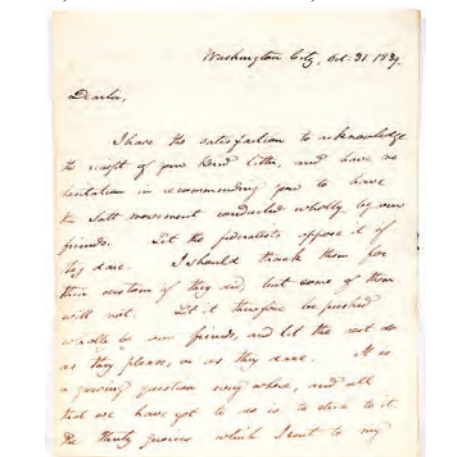 Washington City, Oct. 31 1839.
Dear Sir,
I have the satisfaction to acknowledge
the receipt of your kind letter, and have no
hesitation in recommending you to have
the Salt movement conducted wholly by our
friends. Let the federalists oppose it if
they dare. I should thank them for
their if they did, but some of them
will not. Let it therefore be pushed
wholly by our friends, and let the rest do
as they please, or as they dare. It is
a growing question every where, and all
that we have got to do is to stick to it.
The thirty which I sent to my